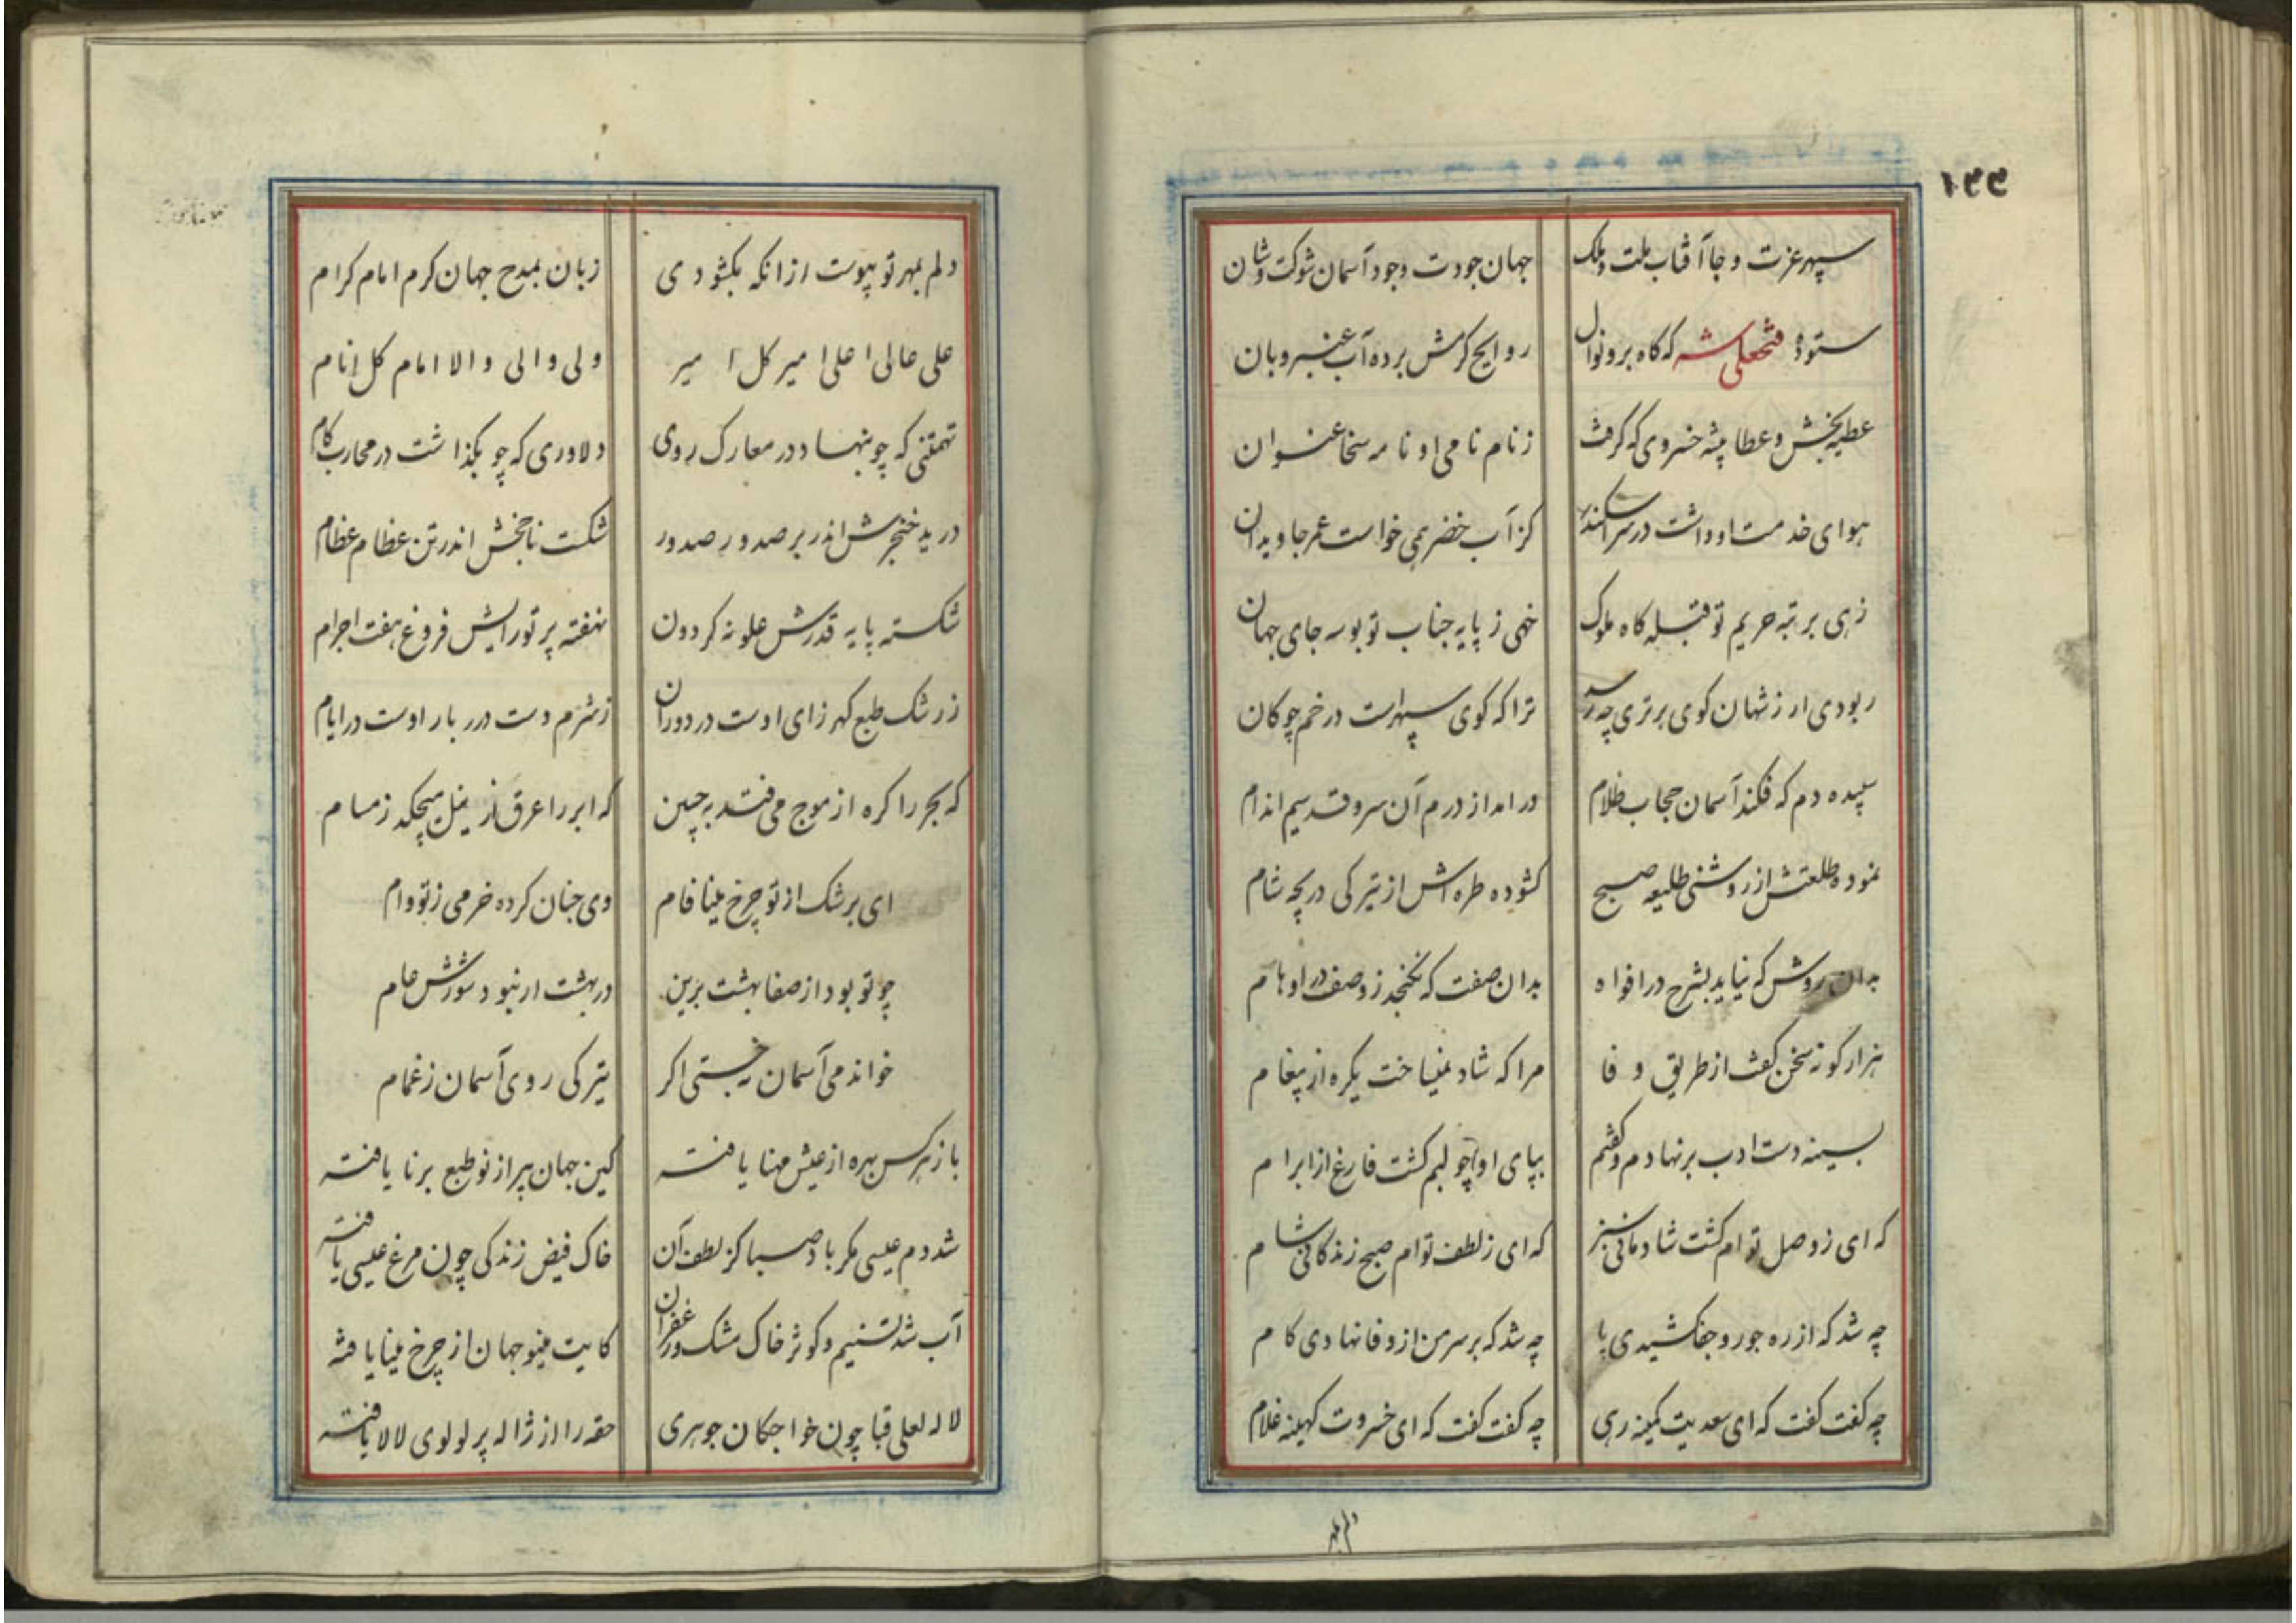 ۱۴۴
سپهر عزت و جا آفتاب ملت و ملک جهان جودت وجود آسمان شوکت و شان
ستوده فتحعلی شه که گاه بر و نوال روایح کرمش برده آب عنبر و بان
عطیه بخش و عطا پیشه خسروی که گرفت ز نام نامی او نامه سخا عنوان
هوای خدمت او داشت در سر اسکندر کز آب خضر همی خواست عمر جاویدان
زهی برتبه حریم تو قبله گاه ملوک خهی ز پایه جناب تو بوسه جای جهان
ربودی ار ز شهان کوی برتری چه رسد ترا که کوی سپهر است در خم چوکان
سپیده دم که فکند آسمان حجاب ظلام در امد از درم آن سرو قد سیم اندام
نموده طلعتش از روشنی طلیعه صبح کشوده طره اش از تیرکی دریچه شام
بدان روش که نیاید بشرح در افواه بدان صفت که نکنجد ز وصف در اوهام
هزار کونه سخن کفت از طریق وفا مرا که شاد نمیساخت یکره از پیغام
بسینه دست ادب برنهادم و کفتم بپای او چو لبم کشت فارغ از ابرام
که ای ز وصل توام کشت شادمانی سبز که ای ز لطف توام صبح زندکانی شام
چه شد که از ره جور و جفا کشیدی پا چه شد که بر سر من از وفا نهادی کام
چه کفت کفت که ای سعدیت کمینه رهی چه کفت کفت که ای خسروت کهینه غلام
دلم بمهر
دلم بمهر تو پیوست از انکه بکشودی زبان بمدح جهان کرم امام کرام
علی عالی اعلی امیر کل امیر ولی والی والا امام کل انام
تهمتنی که چو بنهاد در معارک روی دلاوری که چو بکذاشت در محارب کام
درید خنجرش اندر بر صدور صدور شکست ناچخش اندر تن عظام عظام
شکسته پایه قدرش علو نه کردون نهفته پرتو رایش فروغ هفت اجرام
ز رشک طبع کهر زای اوست در دوران ز شرم دست درر بار اوست در ایام
که بحر را کره از موج می فتد به جبین که ابر را عرق از میچکد ز مسام
ای برشک از تو چرخ مینا فام وی جنان کرده خرمی ز تو وام
چو تو بود از صفا بهشت برین در بهشت ار نبود شورش عام
خواندمی آسمان نجستی اکر تیرکی روی آسمان ز غمام
باز نرکس بهره از عیش مهنا یافته کین جهان پیر از نو طبع برنا یافته
شد دم عیسی مکر باد صبا کز لطف آن خاک فیض زندکی چون مرغ عیسی یافته
آب شد تسنیم و کوثر خاک مشک و زعفران کایت مینو جهان از چرخ مینا یافته
لاله لعلی قبا چون خواجکان جوهری حقه را از ژاله پر لولوی لالا یافته